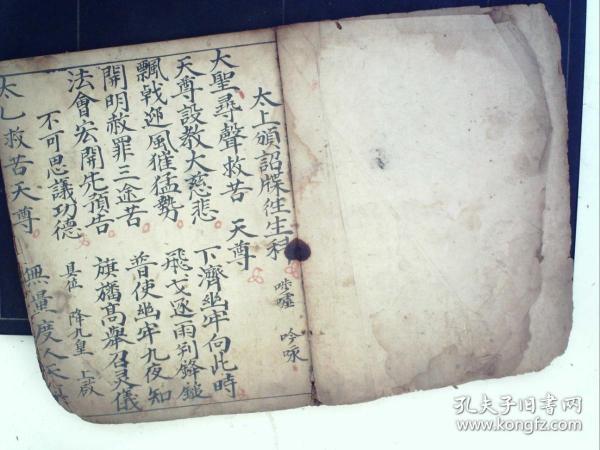 太上頒詔牒徃生科 吽嚧 吟咏
大聖尋聲救苦 天尊
天尊設教大慈悲 下濟幽牢向此時
飄戟迎風猛勢 飛戈逐雨列鋒鋩
開明赦罪三途苦 普使幽牢九夜知
法會宏開先預告 旗旛高舉召灵儀
不可思議功德 具位 降九皇 上啟
太乙救苦天尊 無量度人天尊
孔夫子旧书网
www.kongfz.com